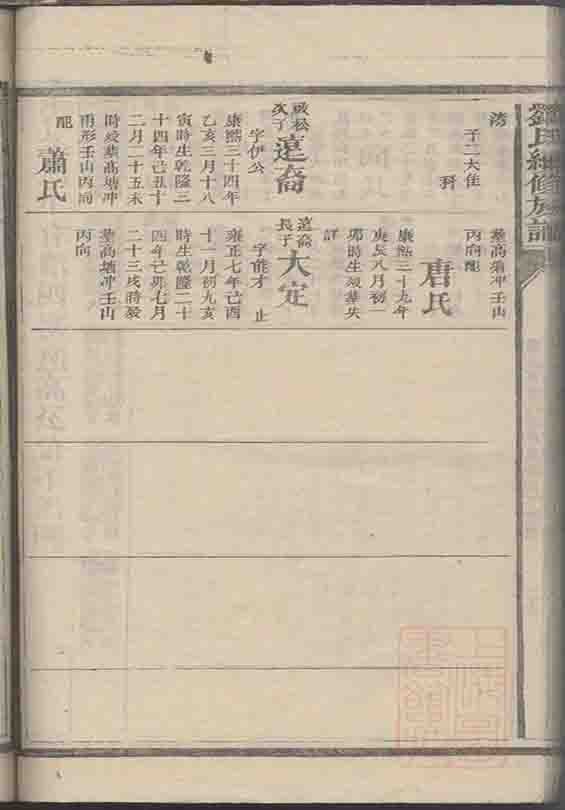 氏續修族譜
湾
子二大佳
科
啟松次子遠裔
字伊公
康熙三十四年
乙亥三月十八
寅時生乾隆三
十四年己丑十
二月二十五未
時歿葬高塘冲
形壬山丙向
配
蕭氏
葬高塘冲壬山
丙向配
唐氏
康熙三十九年
庚辰八月初一
時生歿葬失
詳
遠裔長子大定
字能才 止
雍正七年己酉
十一月初九亥
時生乾隆二十
四年己卯七月
二十三戌時歿
葬高塘冲壬山
丙向